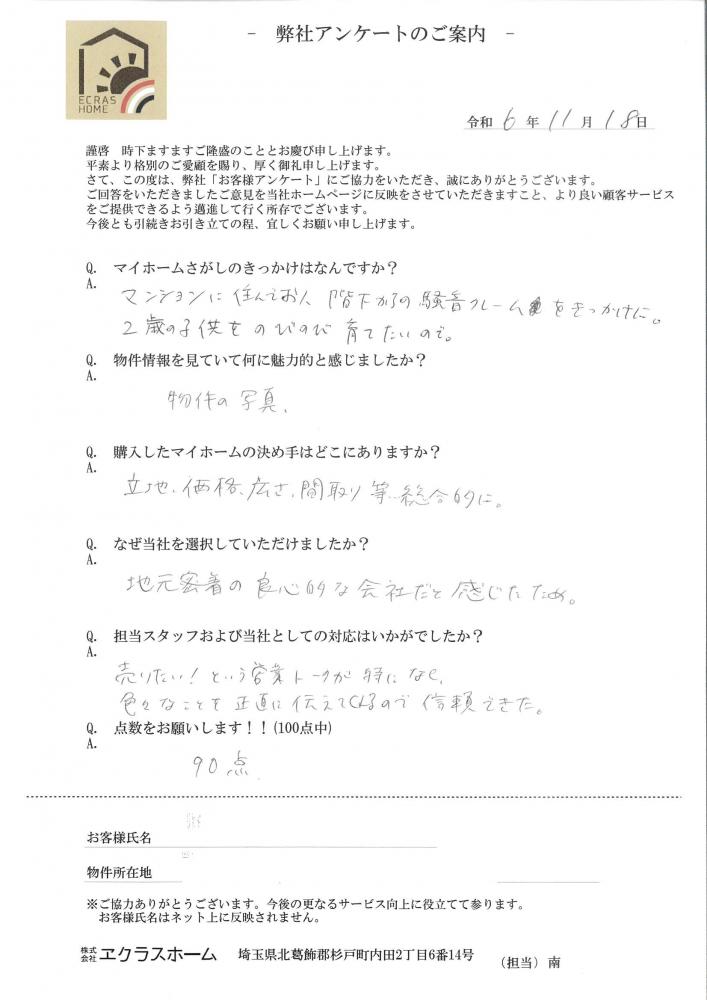 - 弊社アンケートのご案内 -
ECRAS
HOME
令和 6 年 11 月 18 日
謹啓 時下ますますご隆盛のこととお慶び申し上げます。
平素より格別のご愛顧を賜り、厚く御礼申し上げます。
さて、この度は、弊社「お客様アンケート」にご協力をいただき、誠にありがとうございます。
ご回答をいただきましたご意見を当社ホームページに反映をさせていただきますこと、より良い顧客サービス
をご提供できるよう邁進して行く所存でございます。
今後とも引続きお引き立ての程、宜しくお願い申し上げます。
Q. マイホームさがしのきっかけはなんですか？
A.
マンションに住んでおり、階下からの騒音クレームをきっかけに。
2歳の子供をのびのび育てたいので。
Q. 物件情報を見ていて何に魅力的と感じましたか？
A.
物件の写真、
Q. 購入したマイホームの決め手はどこにありますか？
A.
立地、価格、広さ、間取り等…総合的に。
Q. なぜ当社を選択していただけましたか？
A.
地元密着の良心的な会社だと感じたため。
Q. 担当スタッフおよび当社としての対応はいかがでしたか？
A.
売りたい！という営業トークが特になく、
色々なことを正直に伝えてくれるので信頼できた。
Q. 点数をお願いします！！(100点中)
A.
90点
お客様氏名
物件所在地
※ご協力ありがとうございます。今後の更なるサービス向上に役立てて参ります。
お客様氏名はネット上に反映されません。
株式会社 ヱクラスホーム 埼玉県北葛飾郡杉戸町内田2丁目6番14号 （担当）南